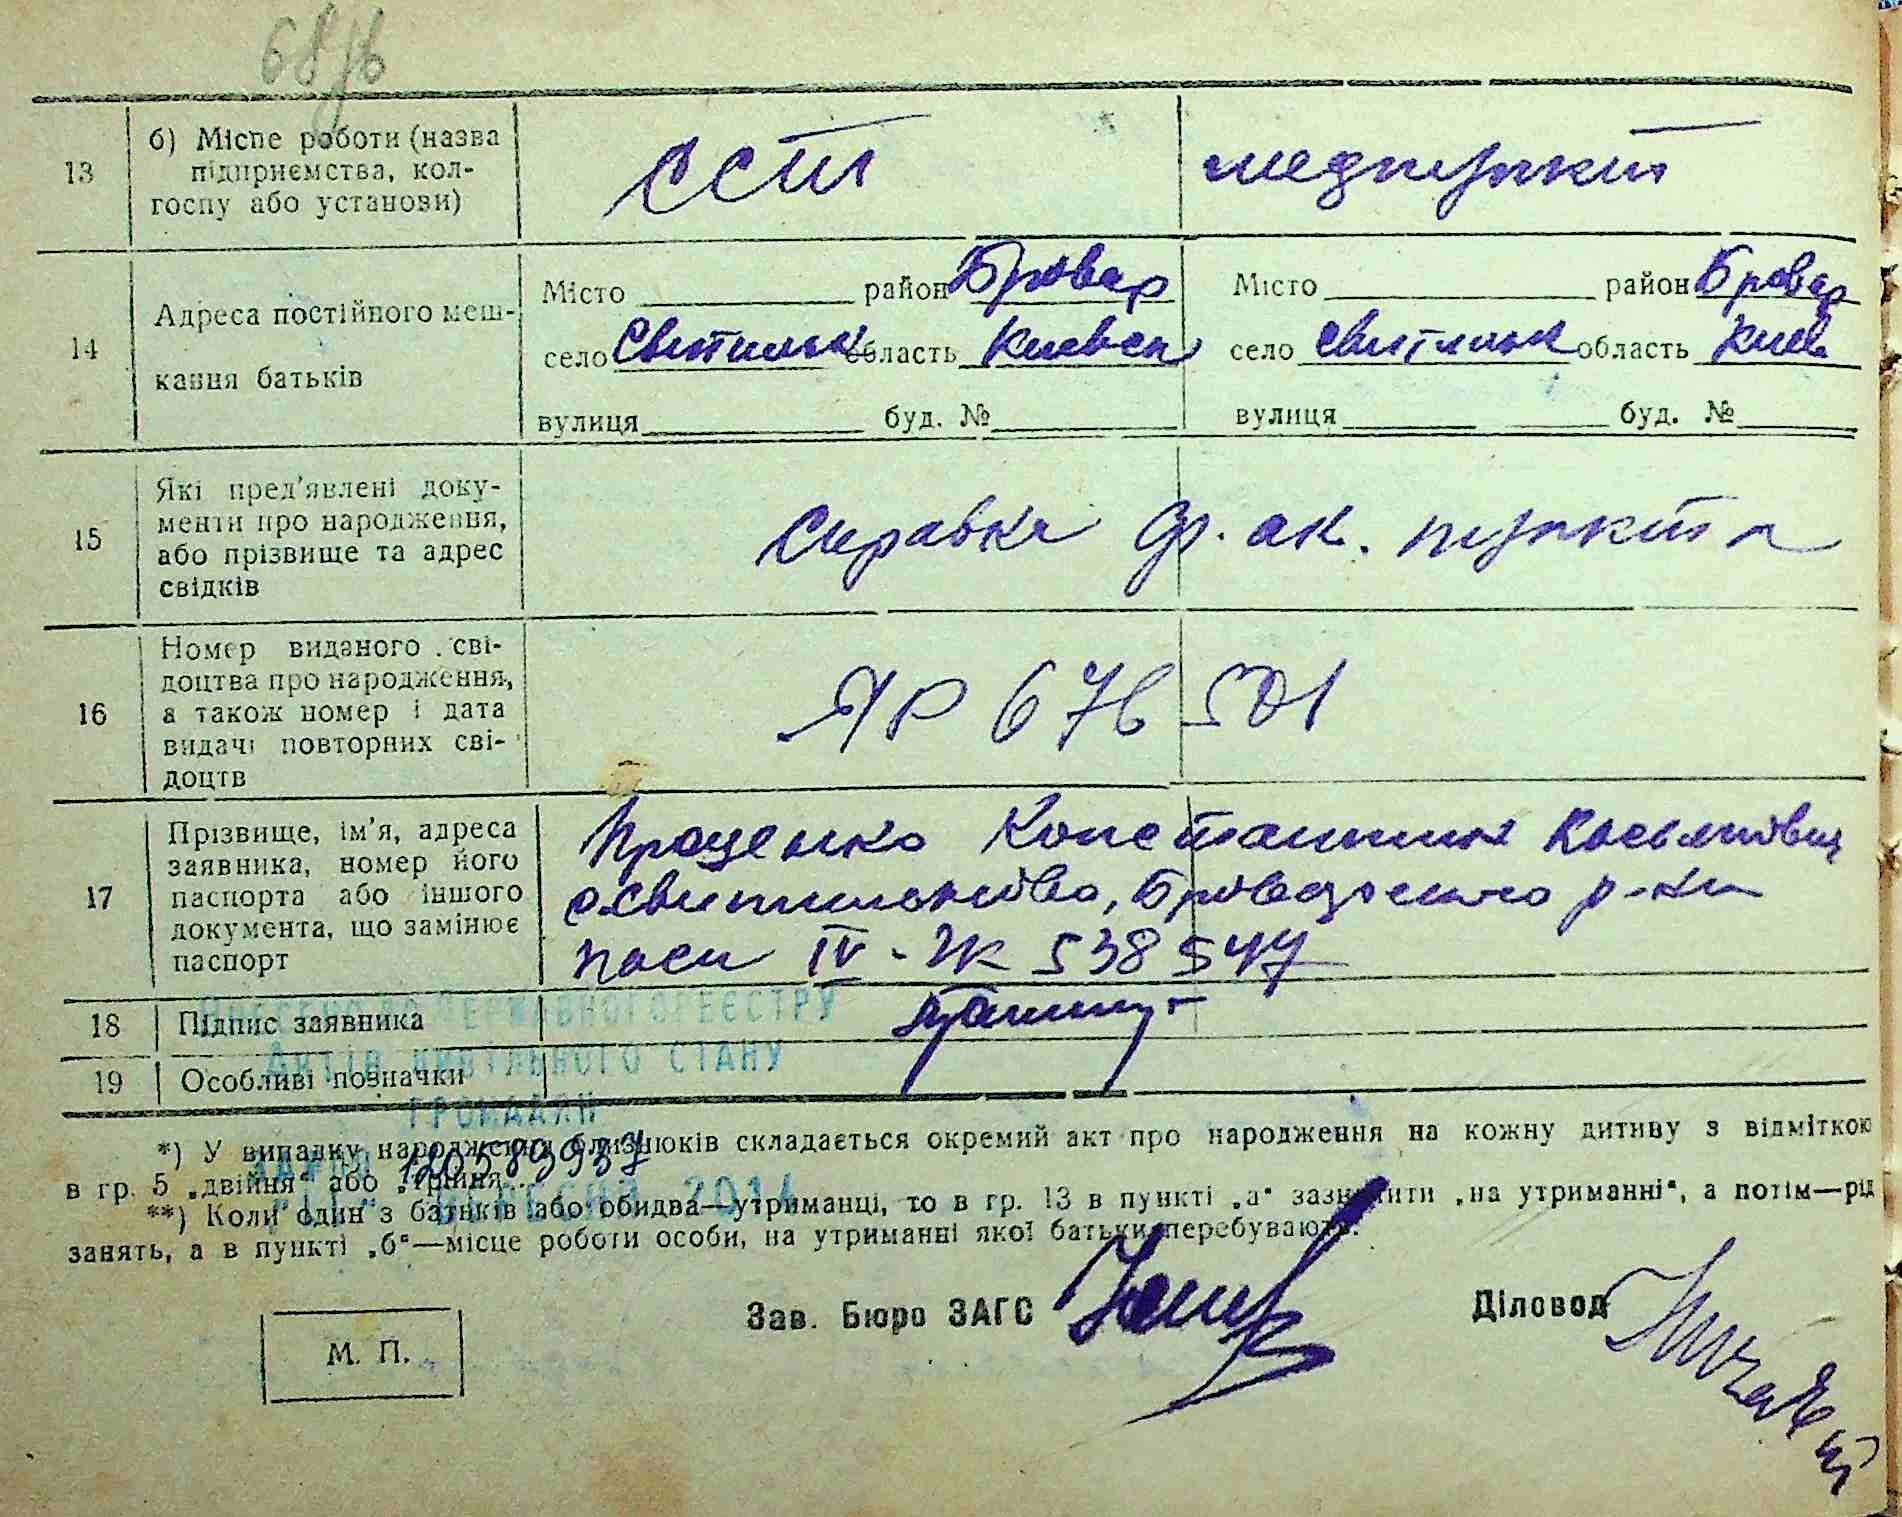 68
13 б) Місце роботи (назва підприємства, колгоспу або установи) ССТ медпункт
14 Адреса постійного мешкання батьків
Місто район Бровар Місто район Бровар
село Світильн область Киевск село Світильн область Киев
вулиця буд. № вулиця буд. №
15 Які пред'явлені документи про народження, або прізвище та адрес свідків Справка ф. ак. пункта
16 Номер виданого свідоцтва про народження, а також номер і дата видачі повторних свідоцтв ЯР 676 501
17 Прізвище, ім'я, адреса заявника, номер його паспорта або іншого документа, що замінює паспорт
Проценко Константин Касьянович
с. Світильнове, Броварського р-на
Пасп IV-ЖК 538547
18 Підпис заявника
19 Особливі позначки
ДЕРЖАВНОГО РЕЄСТРУ
АКТІВ ЦИВІЛЬНОГО СТАНУ
ГРОМАДЯН
120583937
ВЕРЕСНЯ 2014
*) У випадку народження близнюків складається окремий акт про народження на кожну дитину з відміткою
в гр. 5 „двійня“ або „трійня...
**) Коли один з батьків або обидва—утриманці, то в гр. 13 в пункті „а“ зазначити „на утриманні“, а потім—рід
занять, а в пункті „б“—місце роботи особи, на утриманні якої батьки перебувають.
Зав. Бюро ЗАГС Діловод
М. П.